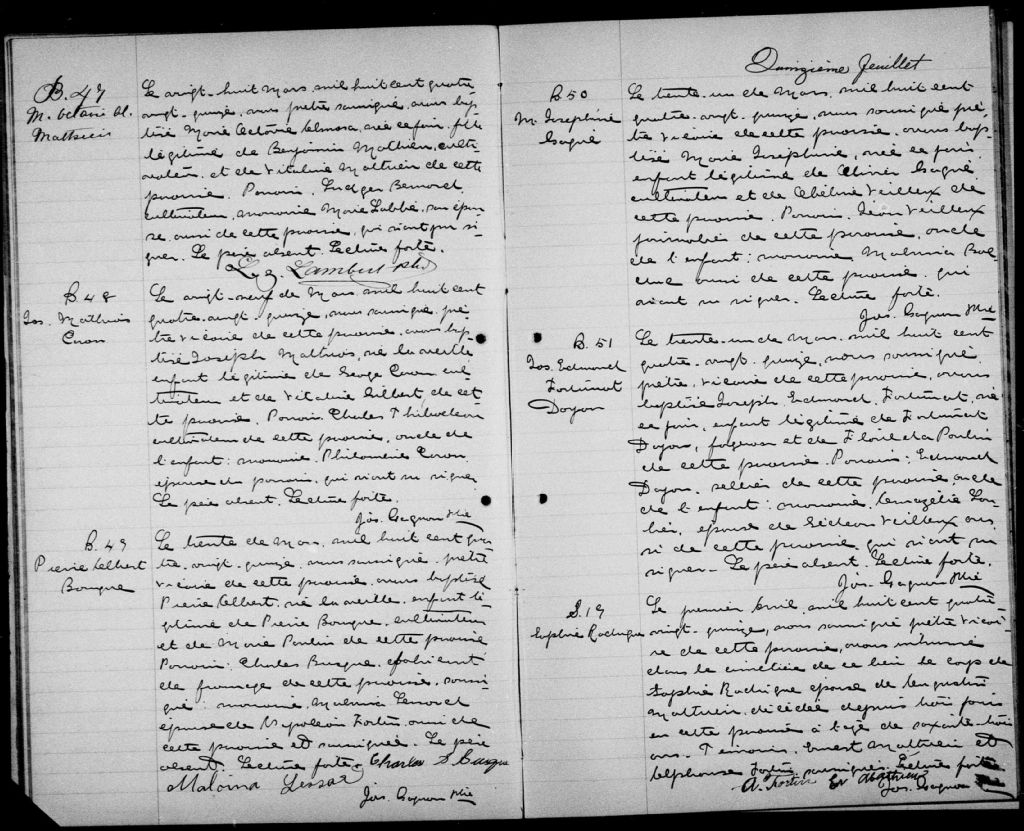 B. 47
M. Octavie Al.
Mathieu
Le vingt-huit Mars mil huit cent quatre
vingt-quinze, nous prêtre soussigné, avons bap-
tisé Marie Octavie née ce jour, fille
légitime de Benjamin Mathieu, culti-
vateur, et de Vitaline Mathieu de cette
paroisse. Parrain, Ludger
cultivateur, marraine Marie Labbé, son épou-
se, aussi de cette paroisse, qui n'ont pu si-
gner. Le père absent. Lecture faite.
Lambert ptre
B. 48
Jos. Mathias
Caron
Le vingt-neuf de Mars mil huit cent
quatre-vingt-quinze, nous soussigné prê-
tre vicaire de cette paroisse, avons bap-
tisé Joseph Mathias, né la veille
enfant légitime de George Caron cul-
tivateur et de Vitaline Gilbert de cet-
te paroisse. Parrain Charles Thibodeau
cultivateur de cette paroisse, oncle de
l'enfant: marraine Philomène Caron,
épouse du parrain, qui n'ont su signer
Le père absent. Lecture faite.
Jos. Gagnon Vic
B. 49
Pierre Albert
Bougue
Le trente de Mars, mil huit cent qua-
tre-vingt-quinze, nous soussigné prêtre
vicaire de cette paroisse, avons baptisé
Pierre Albert né la veille, enfant lé-
gitime de Pierre Bougue, cultivateur
et de Marie Poulin de cette paroisse
Parrain: Charles Busque, fabricant
de fromage de cette paroisse, soussi-
gné: marraine, Malvina Lessard
épouse de Napoléon Fortin, aussi de
cette paroisse et soussignée. Le père
absent. Lecture faite. Charles S. Busque
Malvina Lessard
Jos. Gagnon Vic
Quinzième feuillet
B 50
M. Joséphine
Gagné
Le trente-un de Mars, mil huit cent
quatre-vingt-quinze, nous soussigné prê-
tre vicaire de cette paroisse, avons bap-
tisé Marie Joséphine, née ce jour,
enfant légitime de Olivier Gagné
cultivateur et de Obéline Veilleux de
cette paroisse. Parrain, Jean Veilleux
journalier de cette paroisse, oncle
de l'enfant: marraine Malvina
aussi de cette paroisse, qui
n'ont su signer. Lecture faite.
Jos. Gagnon Vic
B. 51
Jos. Edmond
Fortunat
Doyon
Le trente-un de Mars, mil huit cent
quatre-vingt-quinze, nous soussigné
prêtre, vicaire de cette paroisse, avons
baptisé Joseph Edmond, Fortunat, né
ce jour, enfant légitime de Fortunat
Doyon, et de Florida Poulin
de cette paroisse. Parrain: Edmond
Doyon, sellier de cette paroisse oncle
de l'enfant: marraine,
épouse de Gédéon Veilleux aus-
si de cette paroisse qui n'ont su
signer. Le père absent. Lecture faite.
Jos. Gagnon Vic
S. 19
Sophie Rodrigue
Le premier Avril, mil huit cent quatre-
vingt-quinze, nous soussigné prêtre vicai-
re de cette paroisse, avons inhumé
dans le cimetière de ce lieu le corps de
Sophie Rodrigue épouse de Augustin
Mathieu, décédée depuis trois jours
en cette paroisse à l'age de soixante-trois
ans. Témoins, Ernest Mathieu et
Alphonse Fortin soussignés. Lecture faite
A. Fortin Er Mathieu
Jos. Gagnon